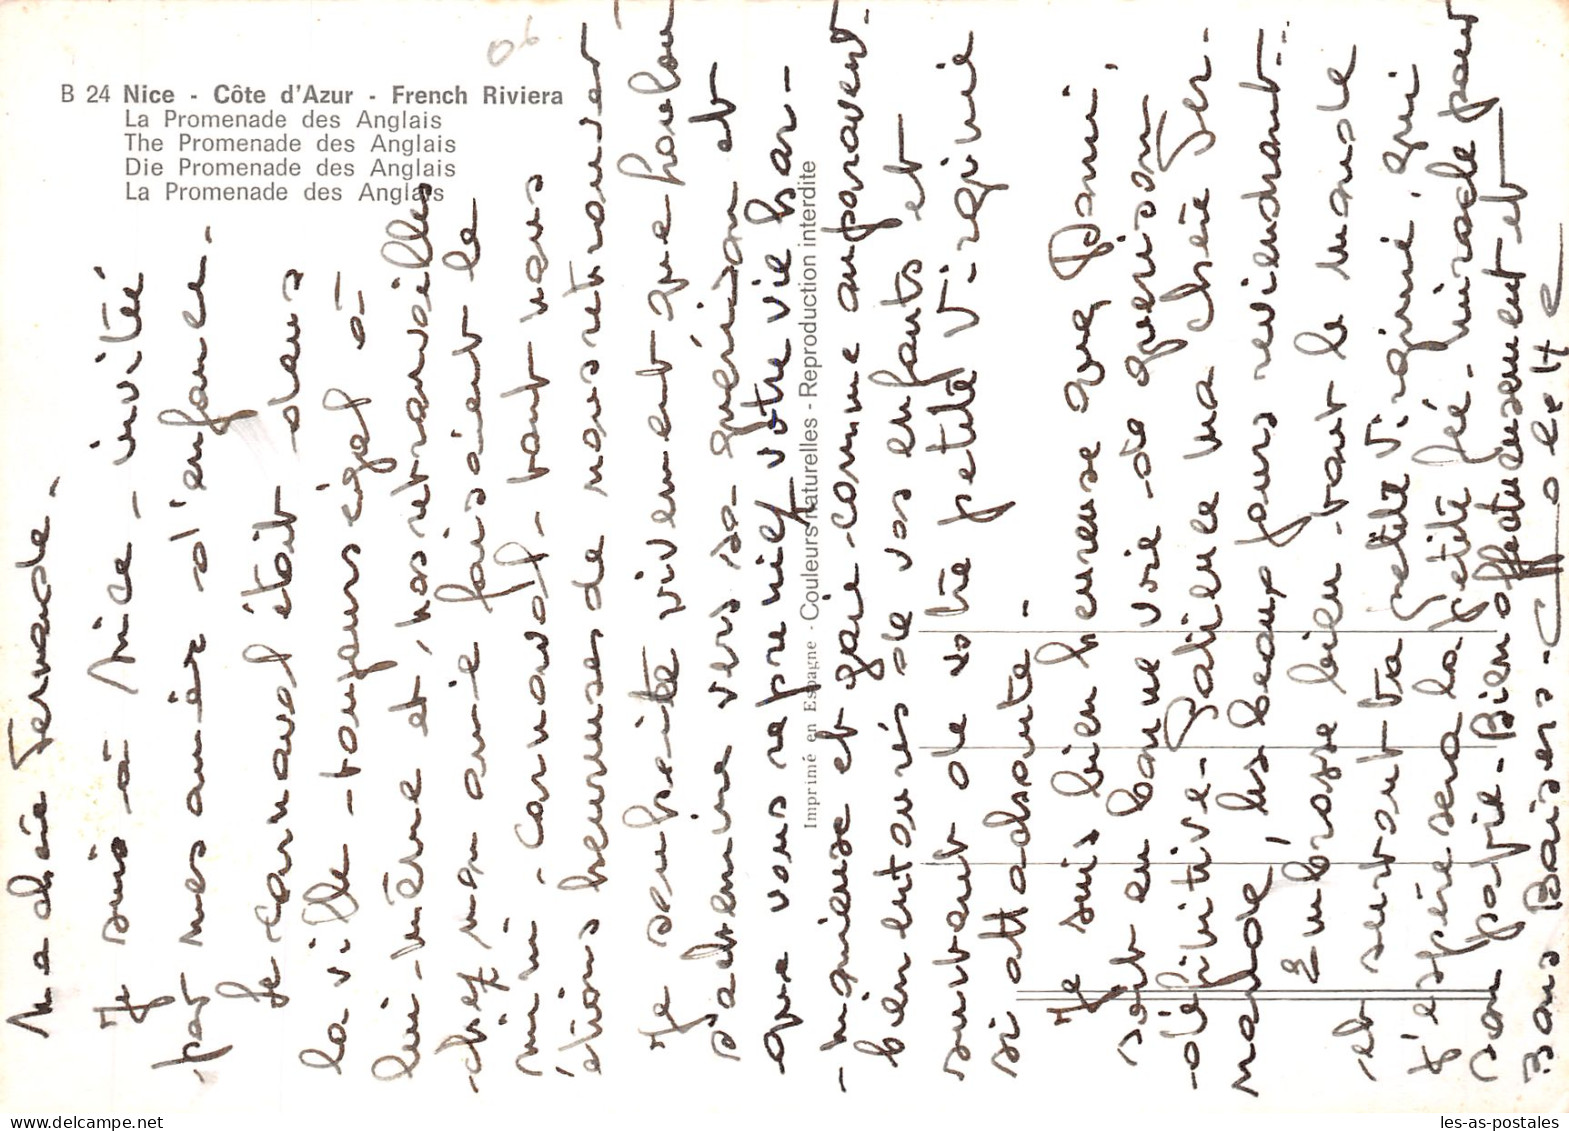 B 24 Nice - Côte d'Azur - French Riviera
La Promenade des Anglais
The Promenade des Anglais
Die Promenade des Anglais
La Promenade des Anglais
Imprimé en Espagne - Couleurs naturelles - Reproduction interdite
Ma chère Fernande -
Je suis à Nice - invité
par mes amies d'enfance -
Le carnaval était dans
la ville - toujours égal à
lui-même et, nos retrouvailles
chez mon amie faisaient le
mini-carnaval - tant nous
étions heureuses de nous retrouver
Je souhaite vivement que
s'achemine vers sa guérison et
que vous repreniez votre vie har-
-monieuse et gaie - comme auparavant -
bien entourés de vos enfants et
surtout de votre petite Virginie
si attachante -
Je suis bien heureuse que Dami,
soit en bonne voie de guérison
définitive - Patience ma chère Fer-
nande, les beaux jours reviendront -
Embrasse bien - tout le monde
et surtout ta petite Virginie, qui
j'espère sera la petite fée-miracle pour
son papie - Bien affectueusement et
Bons Baisers - Colette
les-as-postales.com